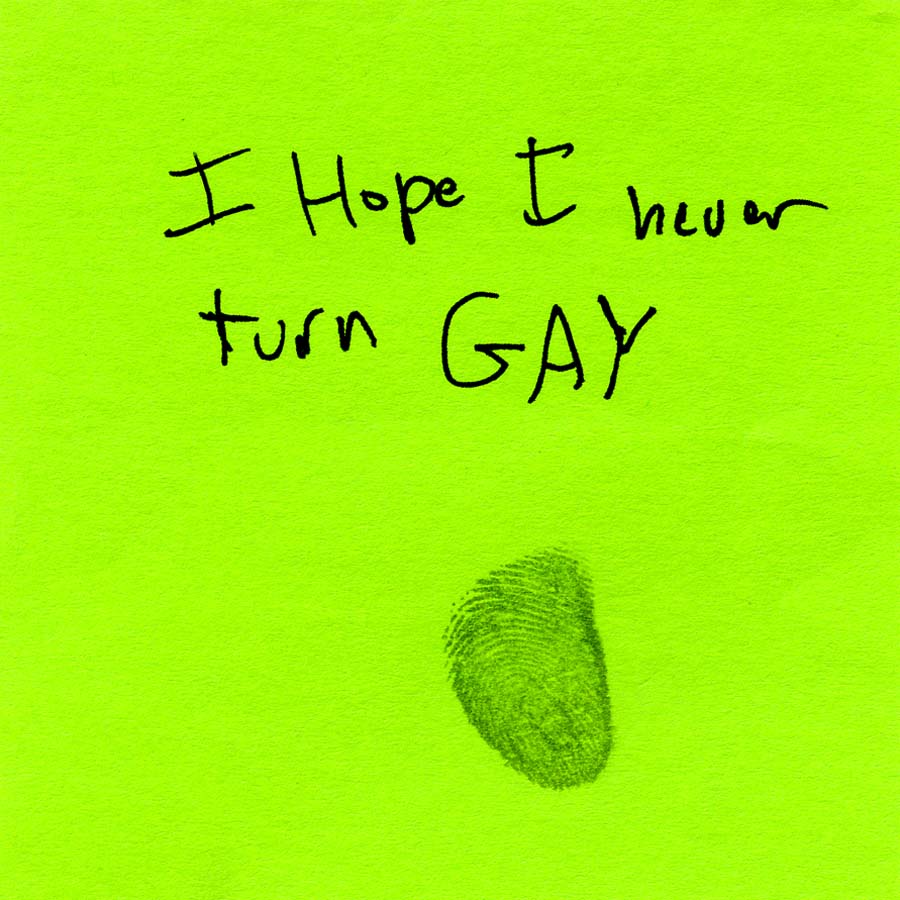 I Hope I never
turn GAY